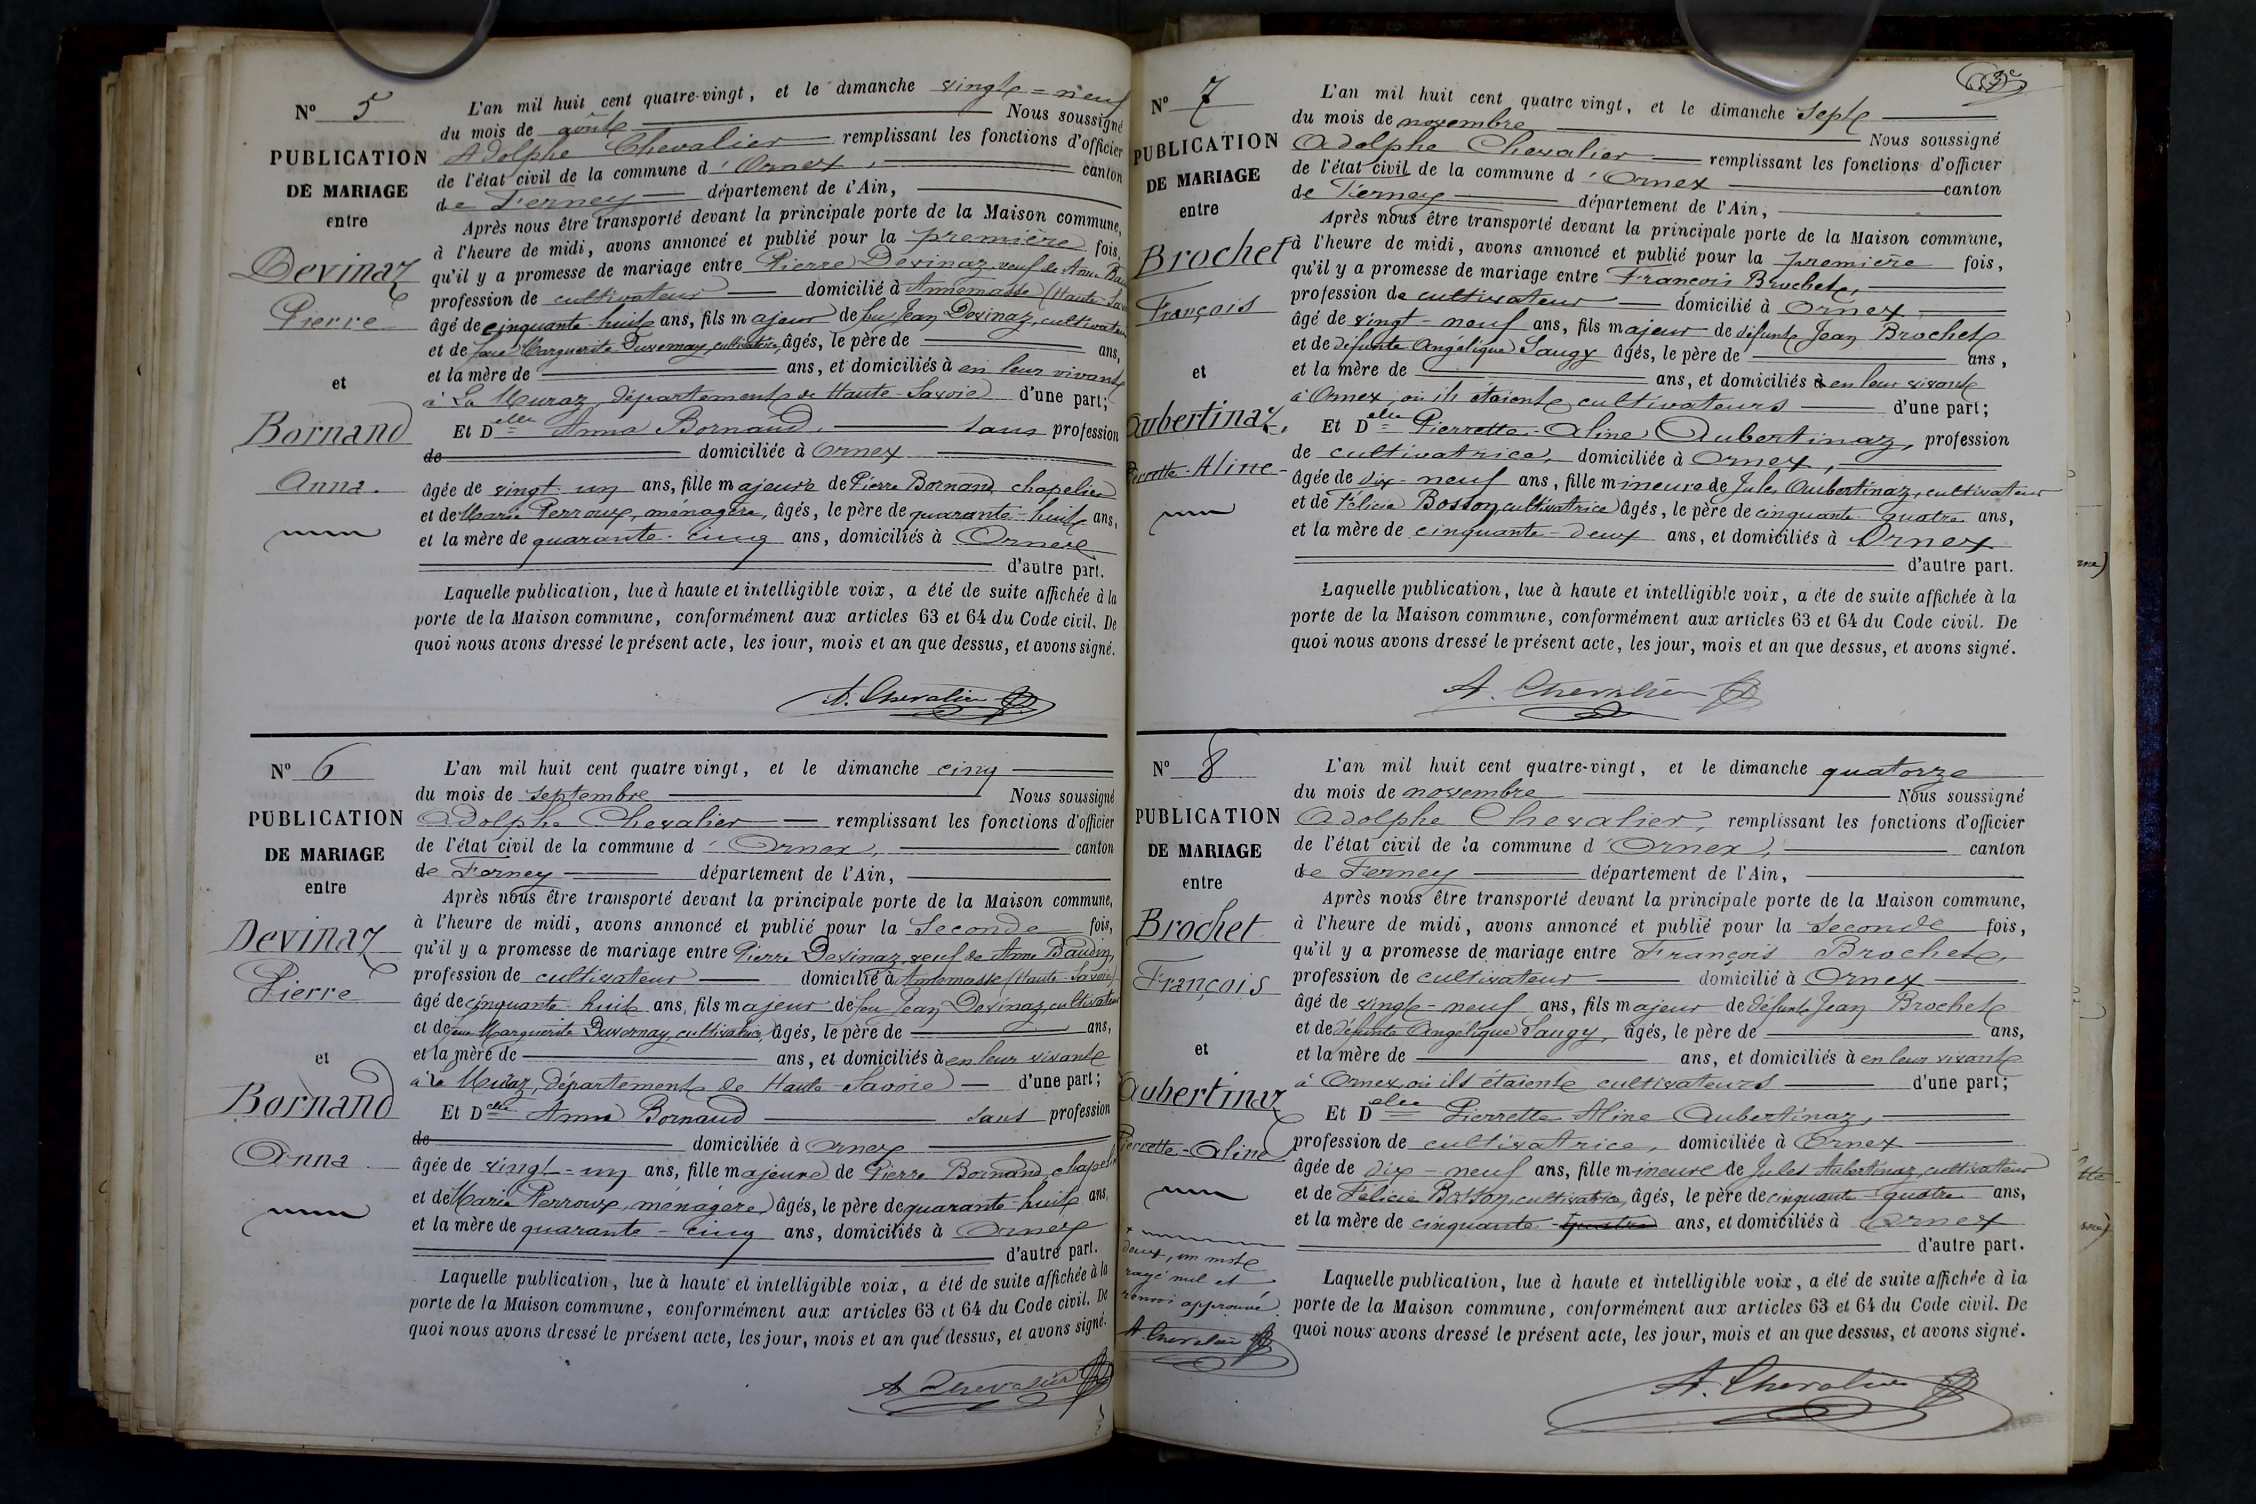 N° 5
PUBLICATION
DE MARIAGE
entre
Devinaz
Pierre
et
Bornand
Anna.
L'an mil huit cent quatre-vingt, et le dimanche vingt-neuf
du mois de août Nous soussigné
Adolphe Chevalier remplissant les fonctions d'officier
de l'état civil de la commune d'Ornex, canton
de Ferney département de l'Ain,
Après nous être transporté devant la principale porte de la Maison commune,
à l'heure de midi, avons annoncé et publié pour la première fois,
qu'il y a promesse de mariage entre Pierre Devinaz, veuf de Anne
profession de cultivateur domicilié à Annemasse (Haute-
âgé de cinquante-huit ans, fils majeur de feu Jean Devinaz, cultivateur
et de feue Marguerite Duvernay, cultivatrice, âgés, le père de ans,
et la mère de ans, et domiciliés à en leur vivant
à La Muraz, département de Haute-Savoie d'une part;
Et Delle Anna Bornand, sans profession
de domiciliée à Ornex
âgée de vingt-un ans, fille majeure de Pierre Bornand, chapelier
et de Marie Perroux, ménagère, âgés, le père de quarante-huit ans,
et la mère de quarante-cinq ans, domiciliés à Ornex
d'autre part.
Laquelle publication, lue à haute et intelligible voix, a été de suite affichée à la
porte de la Maison commune, conformément aux articles 63 et 64 du Code civil. De
quoi nous avons dressé le présent acte, les jour, mois et an que dessus, et avons signé.
A. Chevalier
N° 6
PUBLICATION
DE MARIAGE
entre
Devinaz
Pierre
et
Bornand
Anna
L'an mil huit cent quatre vingt, et le dimanche cinq
du mois de septembre Nous soussigné
Adolphe Chevalier remplissant les fonctions d'officier
de l'état civil de la commune d'Ornex, canton
de Ferney département de l'Ain,
Après nous être transporté devant la principale porte de la Maison commune,
à l'heure de midi, avons annoncé et publié pour la seconde fois,
qu'il y a promesse de mariage entre Pierre Devinaz, veuf de Anne Baudin,
profession de cultivateur domicilié à Annemasse (Haute-Savoie)
âgé de cinquante-huit ans, fils majeur de feu Jean Devinaz, cultivateur
et de feue Marguerite Duvernay, cultivatrice, âgés, le père de ans,
et la mère de ans, et domiciliés à en leur vivant
à La Muraz, département de Haute-Savoie d'une part;
Et Delle Anna Bornand sans profession
de domiciliée à Ornex
âgée de vingt-un ans, fille majeure de Pierre Bornand, chapelier
et de Marie Perroux, ménagère, âgés, le père de quarante-huit ans,
et la mère de quarante-cinq ans, domiciliés à Ornex
d'autre part.
Laquelle publication, lue à haute et intelligible voix, a été de suite affichée à la
porte de la Maison commune, conformément aux articles 63 et 64 du Code civil. De
quoi nous avons dressé le présent acte, les jour, mois et an que dessus, et avons signé.
A. Chevalier
N° 7
PUBLICATION
DE MARIAGE
entre
Brochet
François
et
Aubertinaz,
Pierrette-Aline
L'an mil huit cent quatre vingt, et le dimanche sept
du mois de novembre Nous soussigné
Adolphe Chevalier remplissant les fonctions d'officier
de l'état civil de la commune d'Ornex canton
de Ferney département de l'Ain,
Après nous être transporté devant la principale porte de la Maison commune,
à l'heure de midi, avons annoncé et publié pour la première fois,
qu'il y a promesse de mariage entre François Brochet,
profession de cultivateur domicilié à Ornex
âgé de vingt-neuf ans, fils majeur de défunt Jean Brochet
et de défunte Angélique Saugy âgés, le père de ans,
et la mère de ans, et domiciliés à en leur vivant
à Ornex, où ils étaient cultivateurs d'une part;
Et Delle Pierrette-Aline Aubertinaz, profession
de cultivatrice, domiciliée à Ornex,
âgée de dix-neuf ans, fille mineure de Jules Aubertinaz, cultivateur
et de Félicie Bosson, cultivatrice âgés, le père de cinquante-quatre ans,
et la mère de cinquante-deux ans, et domiciliés à Ornex
d'autre part.
Laquelle publication, lue à haute et intelligible voix, a été de suite affichée à la
porte de la Maison commune, conformément aux articles 63 et 64 du Code civil. De
quoi nous avons dressé le présent acte, les jour, mois et an que dessus, et avons signé.
A. Chevalier
N° 8
PUBLICATION
DE MARIAGE
entre
Brochet
François
et
Aubertinaz
Pierrette-Aline
deux, un mot
rayé nul et
renvoi approuvé.
A Chevalier
L'an mil huit cent quatre-vingt, et le dimanche quatorze
du mois de novembre Nous soussigné
Adolphe Chevalier, remplissant les fonctions d'officier
de l'état civil de la commune d'Ornex, canton
de Ferney département de l'Ain,
Après nous être transporté devant la principale porte de la Maison commune,
à l'heure de midi, avons annoncé et publié pour la seconde fois,
qu'il y a promesse de mariage entre François Brochet,
profession de cultivateur domicilié à Ornex
âgé de vingt-neuf ans, fils majeur de défunt Jean Brochet
et de défunte Angélique Saugy, âgés, le père de ans,
et la mère de ans, et domiciliés à en leur vivant
à Ornex, où ils étaient cultivateurs d'une part;
Et Delle Pierrette Aline Aubertinaz,
profession de cultivatrice, domiciliée à Ornex
âgée de dix-neuf ans, fille mineure de Jules Aubertinaz, cultivateur
et de Félicie Bosson, cultivatrice, âgés, le père de cinquante-quatre ans,
et la mère de cinquante-quatre ans, et domiciliés à Ornex
d'autre part.
Laquelle publication, lue à haute et intelligible voix, a été de suite affichée à la
porte de la Maison commune, conformément aux articles 63 et 64 du Code civil. De
quoi nous avons dressé le présent acte, les jour, mois et an que dessus, et avons signé.
A. Chevalier